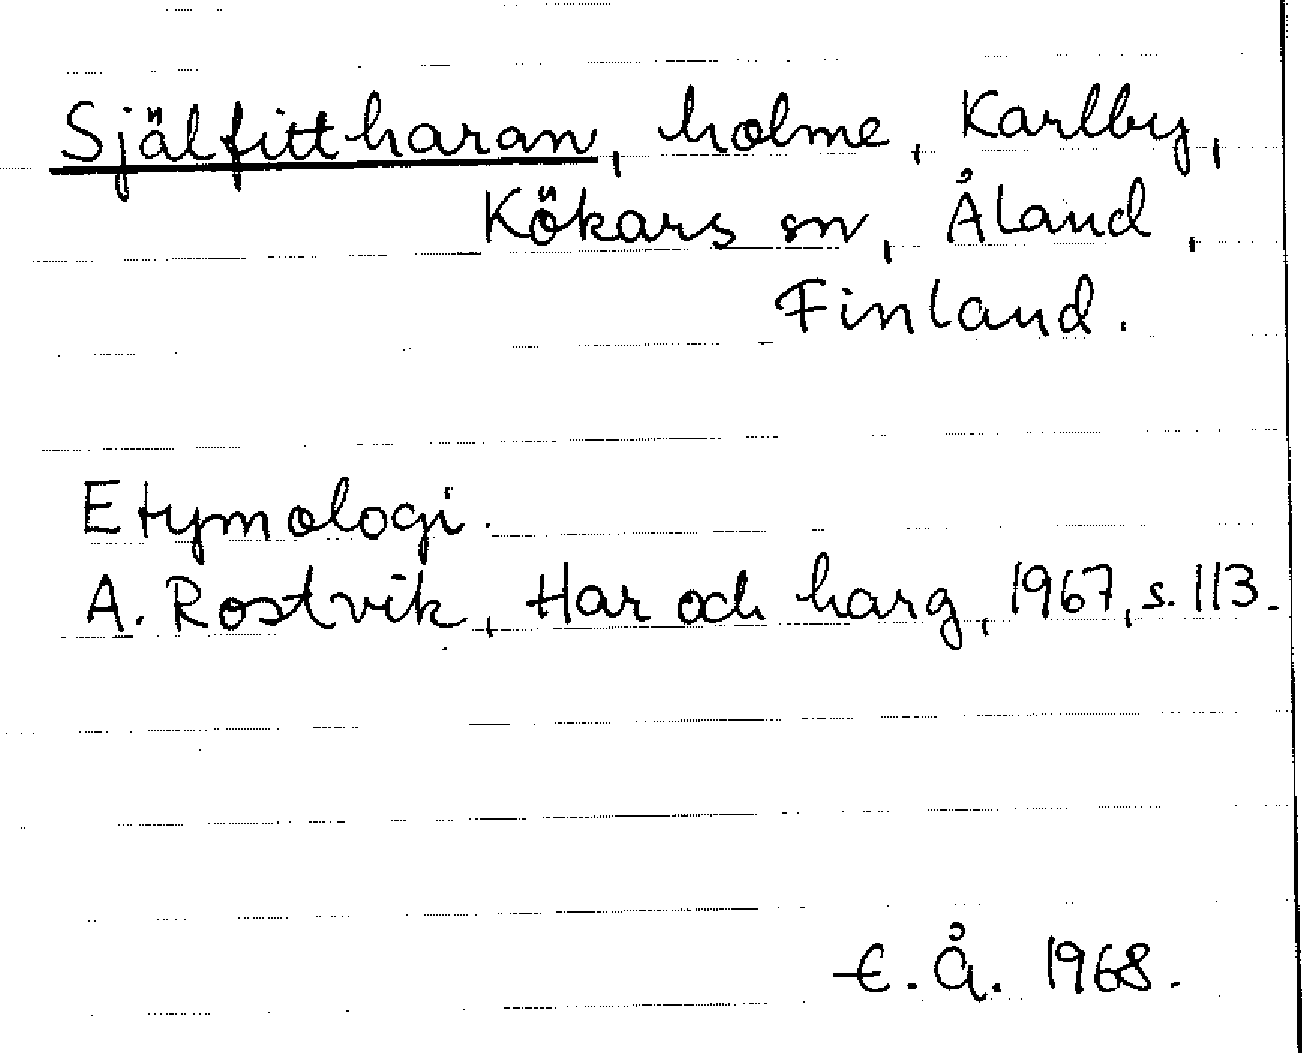 Själfittharan, holme, Karlby,
Kökars sn, Åland,
Finland.
Etymologi.
A. Rostvik, Har och harg, 1967, s. 113.
E. Å. 1968.